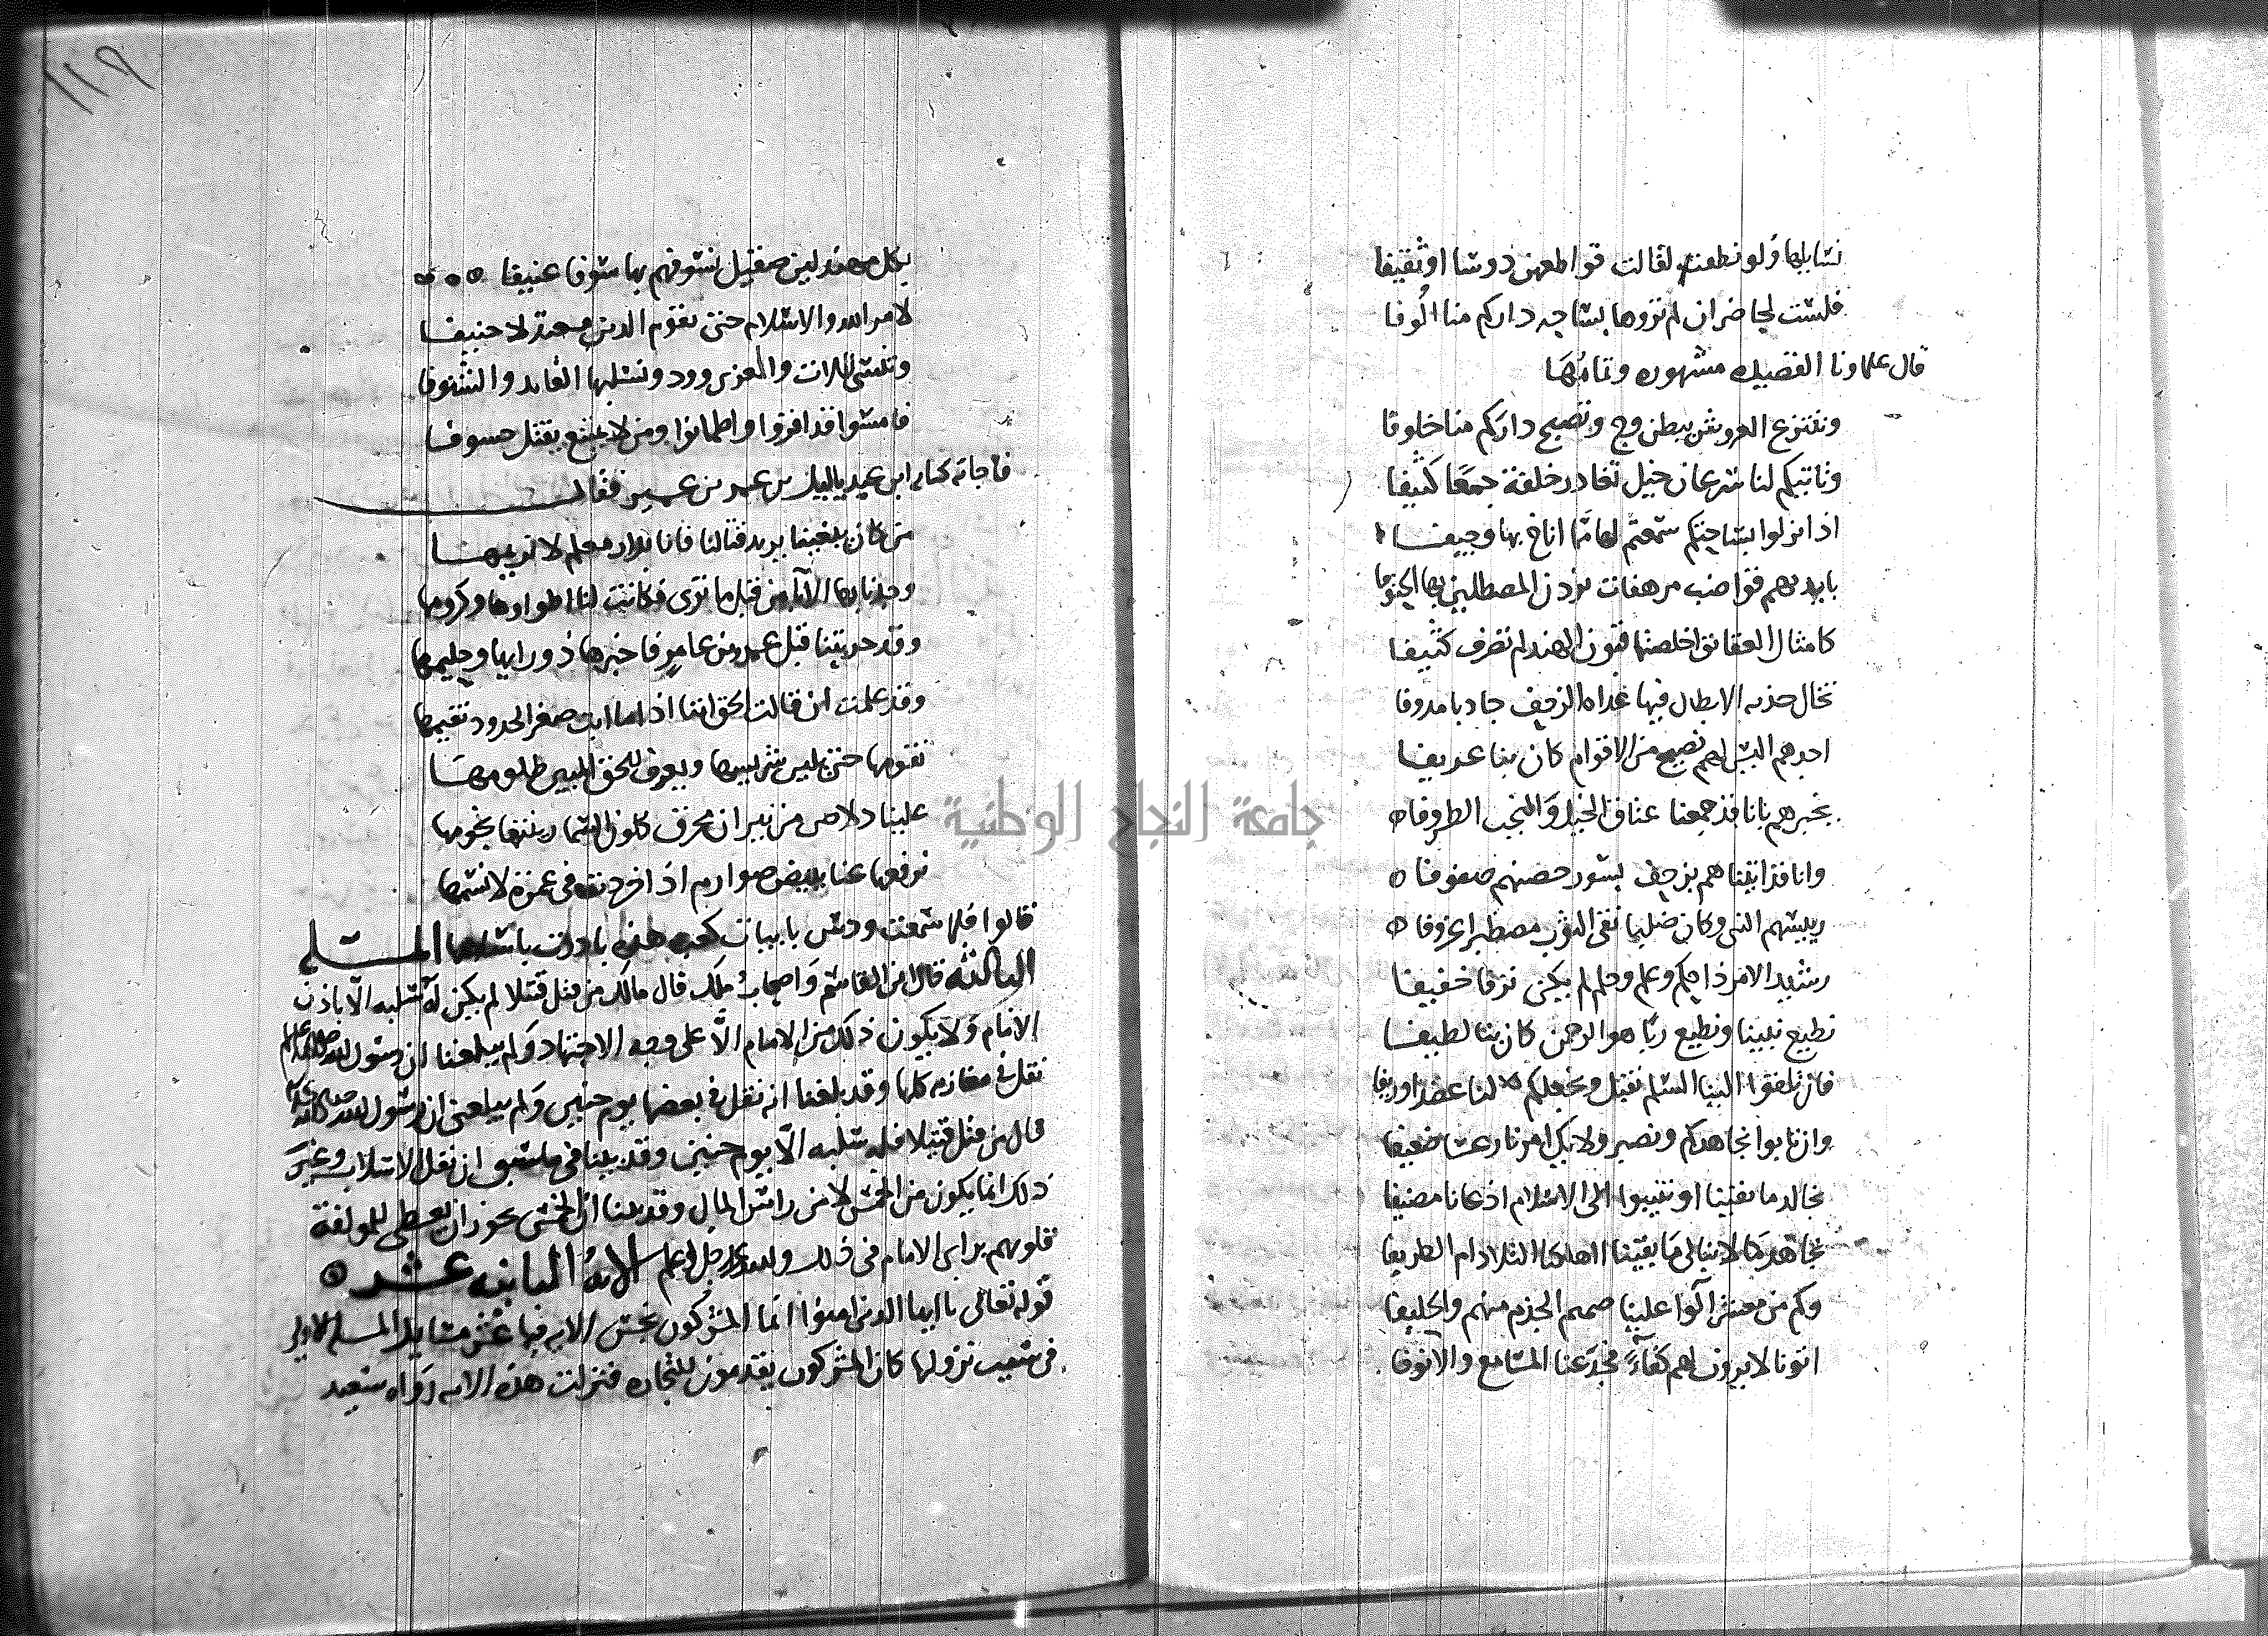 نسايلها ولو نطقت لقالت قواطعهن دوسا او ثقيفا
فلست لحاضر ان لم تروها بساحه داركم منا الوفا
قال علماونا القصيده مشهوره وتمامها
وننتزع العروش ببطن وج وتصبح داركم منا خلوفا
وتاتيكم لنا سرعان خيل تغادر خلفه جمعا كثيفا
اذا نزلوا بساحتكم سمعتم لها مما اناخ بها وجيفا
بايديهم قواضب مرهفات يزرن المصطلين بها الحتوفا
كامثال العقائق اخلصتها قيون الهند لم تضرب كتيفا
تخال جديه الابطال فيها غداه الزحف جاديا مدوفا
اجدهم اليس لهم نصيح من الاقوام كان بنا عريفا
يخبرهم بانا قد جمعنا عتاق الخيل والنجب الطروفا
وانا قد اتيناهم بزحف بسور حصنهم صفوفا
رييسهم النبى وكان صليبا نقى الثوب مصطبرا عزوفا
رشيد الامر ذا حكم وعلم وحلم لم يكن نزقا خفيفا
نطيع نبينا ونطيع ربا هو الرحمن كان بنا لطيفا
فان تلقوا الينا السلم نقبل ونجعلكم لنا عضدا وريفا
وان تابوا نجاهدكم ونصبر ولا يك امرنا رعشا ضعيفا
نجالد ما بقينا او تنيبوا الى الاسلام اذعانا مضيفا
نجاهد لا نبالى ما لقينا ااهلكنا التلاد ام الطريفا
وكم من معشر الوا علينا صميم الجذم منهم والحليفا
اتونا لا يرون لهم كفاء فجدعنا المسامع والانوفا
١١٩
بكل مهند لين صقيل نسوقهم بها سوقا عنيفا
لامر الله والاسلام حتى يقوم الدين معتدلا حنيفا
وتنسى اللات والعزى وود ونسلبها القلايد والشنوفا
فامسوا قد اقروا واطمانوا ومن لا يمتنع يقتل خسوفا
فاجابه كنانه ابن عبد ياليل بن عمرو بن عمير فقال
من كان يبغينا يريد قتالنا فانا بدار معلم لا نريمها
وجدنا بها الابا من قبل ما ترى وكانت لنا اطواوها وكرومها
وقد جربتنا قبل عمرو بن عامر فاخبرها ذو رايها وحليمها
وقد علمت ان قالت الحق اننا اذا ما ابت صعر الخدود نقيمها
نقومها حتى يلين شريسها ويعرف للحق المبين ظلومها
علينا دلاص من تراث محرق كلون السما زينتها نجومها
نرفعها عنا ببيض صوارم اذا جردت فى غمرة لا نشيمها
قالوا فلما سمعت دوس بابيات كعب هذه بادرت باسلامها المسلة
الثالثه قال ابن القاسم واصحاب ملك قال مالك من قتل قتيلا لم يكن له سلبه الا باذن
الامام ولا يكون ذلك من الامام الا على وجه الاجتهاد ولم يبلغنا ان رسول الله صلى الله عليه
نفل فى مغازيه كلها وقد بلغنا انه نفل فى بعضها يوم حنين ولم يبلغنى ان رسول الله صلى الله عليه
قال من قتل قتيلا فله سلبه الا يوم حنين وقد بينا فى ما سبق ان نفل الاسلاب وغير
ذلك انما يكون من الخمس لا من راس المال وقد بينا ان الخمس يجوز ان يعطى للمولفة
قلوبهم براى الامام فى ذلك والله عز وجل اعلم الايه الثانيه عشر
قوله تعالى ياايها الذين امنوا انما المشركون نجس الايه فيها عشر مسايل المسله الاولى
فى سبب نزولها كان المشركون يقدمون للتجاره فنزلت هذه الايه رواه سعيد
جامعة النجاح الوطنية